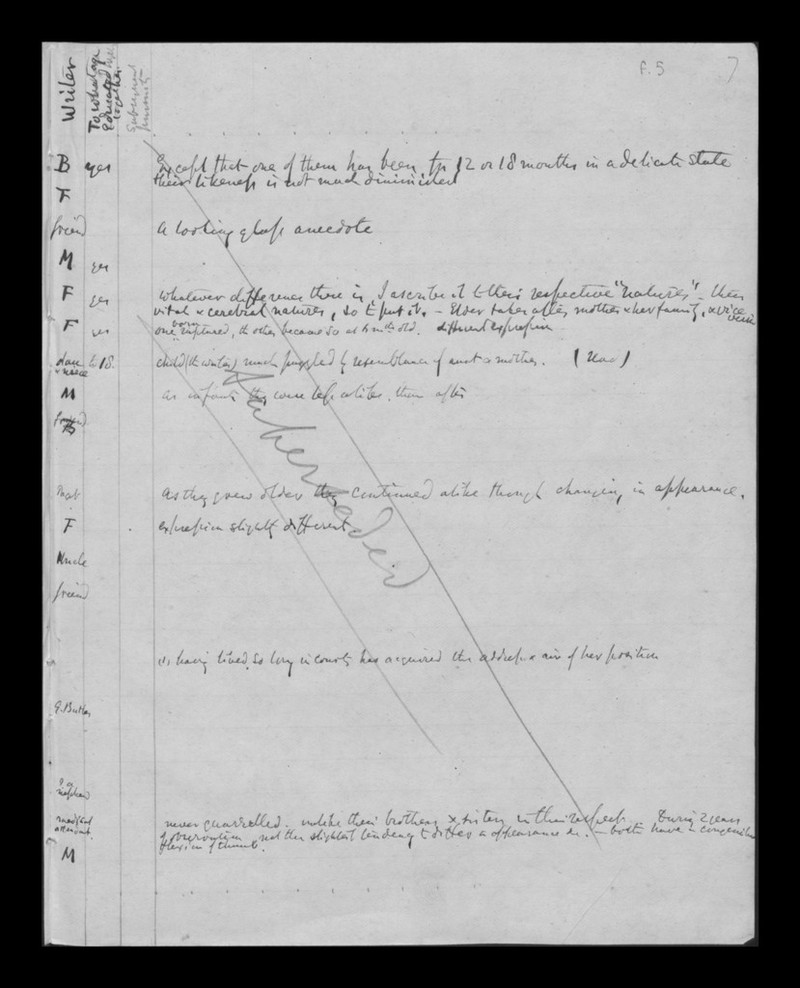 f. 5 7
Writer
To what age Educated together
Subsequent
B yes Except that one of them has been for 12 or 18 months in a delicate state
their likeness is not much diminished
F
friend A looking glass anecdote
M yes
F yes Whatever difference there is, I ascribe it to their respective "natures" - their
vital & cerebral natures, so to put it. - Elder takes after mother & her family, & vice versa
F yes one born ruptured, the other became so at 6 mth old. different expression
to 18. child (the writer) much puzzled by resemblance of aunt & mother.
& niece
M as infants they were less alike than after
friend
As they grew older they continued alike though changing in appearance.
F expression slightly different
Uncle
friend
(1) having lived so long in county has acquired the address & air of her position
G. Butler
? a
nephew
medical never quarrelled. unlike their brothers & sisters in this respect. During 2 years
attendant of observation not the slightest tendency to differ in appearance &c. - both have a congenital
flexion of thumb.
M